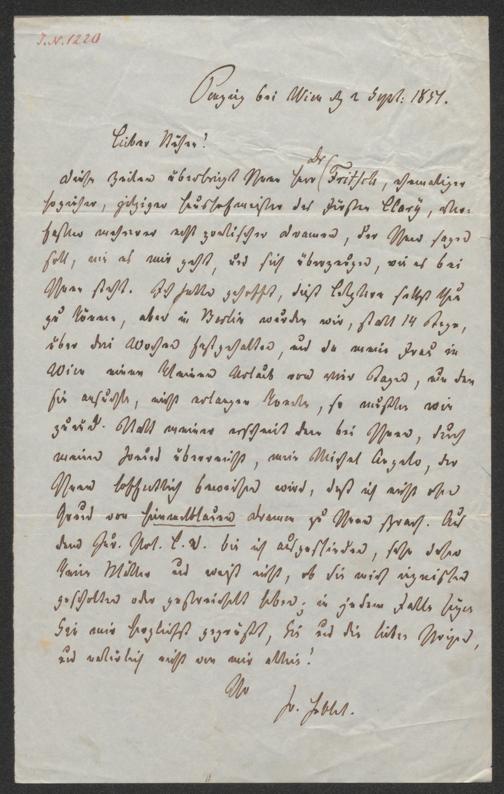 I.N. 1220
Penzing bei Wien d 2 Sept: 1851.
Lieber Kühne!
Diese Zeilen überbringt Ihnen Herr Dr Fritsch, ehemaliger
Hofmeister des Fürsten Clary, Ver-
fasser mehrerer ächt poetischer Dramen, der Ihnen sagen
soll, wie es mir geht, und sich überzeugen, wie es bei
Ihnen steht. Ich hatte gehofft, dieß Letztere selbst thun
zu können, aber in Berlin wurden wir, statt 14 Tage,
über drei Wochen festgehalten, und da meine Frau in
Wien einen kleinen Urlaub von vier Tagen, um den
sie ansuchte, nicht erlangen konnte, so mußten wir
zurück. Statt meiner erscheint denn bei Ihnen, durch
meinen Freund überreicht, mein Michel Angelo, der
Ihnen hoffentlich beweisen wird, daß ich nicht ohne
Grund von himmelblauen Dramen zu Ihnen sprach. Aus
dem bin ich ausgeschieden, habe daher
keine Blätter und weiß nicht, ob Sie mich inzwischen
gescholten oder gestreichelt haben; in jedem Falle seyen
Sie mir herzlichst gegrüßt, Sie und die lieben Ihrigen,
und natürlich nicht von mir allein!
Ihr
Fr. Hebbel.